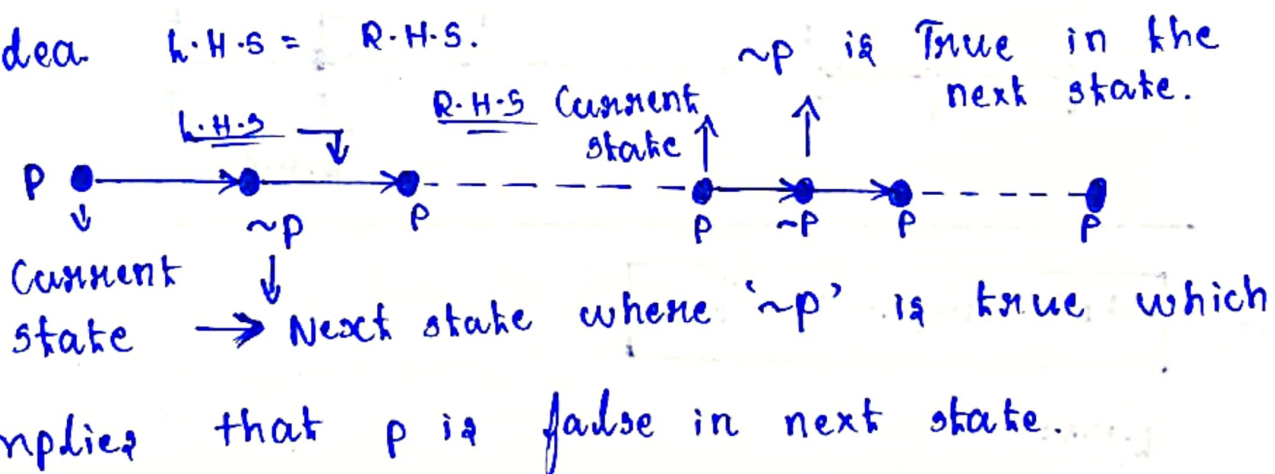 dea. L.H.S = R.H.S. ~p is True in the
next state.
L.H.S R.H.S Current
state
P
~p P P ~P P P
Current
state → Next state where '~p' is true which
mplies that p is false in next state...